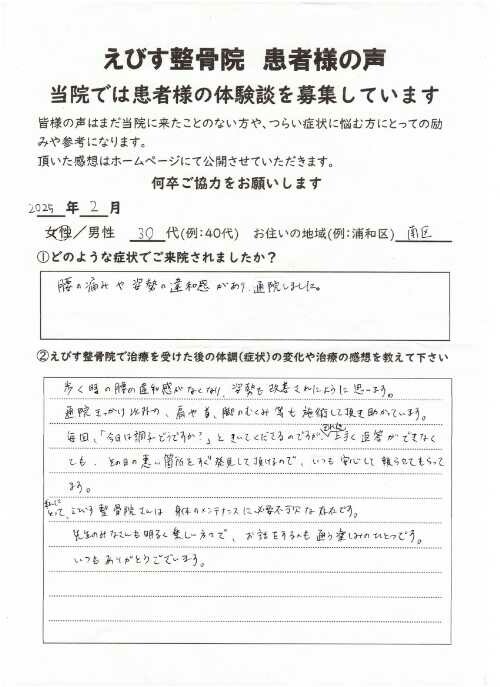 えびす整骨院 患者様の声
当院では患者様の体験談を募集しています
皆様の声はまだ当院に来たことのない方や、つらい症状に悩む方にとっての励
みや参考になります。
頂いた感想はホームページにて公開させていただきます。
何卒ご協力をお願いします
2025 年 2 月
女性／男性 30 代(例：40代) お住いの地域(例：浦和区) 南区
①どのような症状でご来院されましたか？
腰の痛みや姿勢の違和感があり、通院しました。
②えびす整骨院で治療を受けた後の体調(症状)の変化や治療の感想を教えて下さい
歩く時の腰の違和感がなくなり、姿勢も改善されたように思います。
通院きっかけ以外の、肩や首、脚のむくみ等も施術して頂き助かっています。
毎回、「今日は調子どうですか？」ときいてくださるのですが、それに上手く返答ができなく
ても、その日の悪い箇所をすぐ発見して頂けるので、いつも安心して頼らせてもらって
ます。
私にとって、えびす整骨院さんは、身体のメンテナンスに必要不可欠な存在です。
先生のみなさんも明るく楽しい方々で、お話をするのも通う楽しみのひとつです。
いつもありがとうございます。